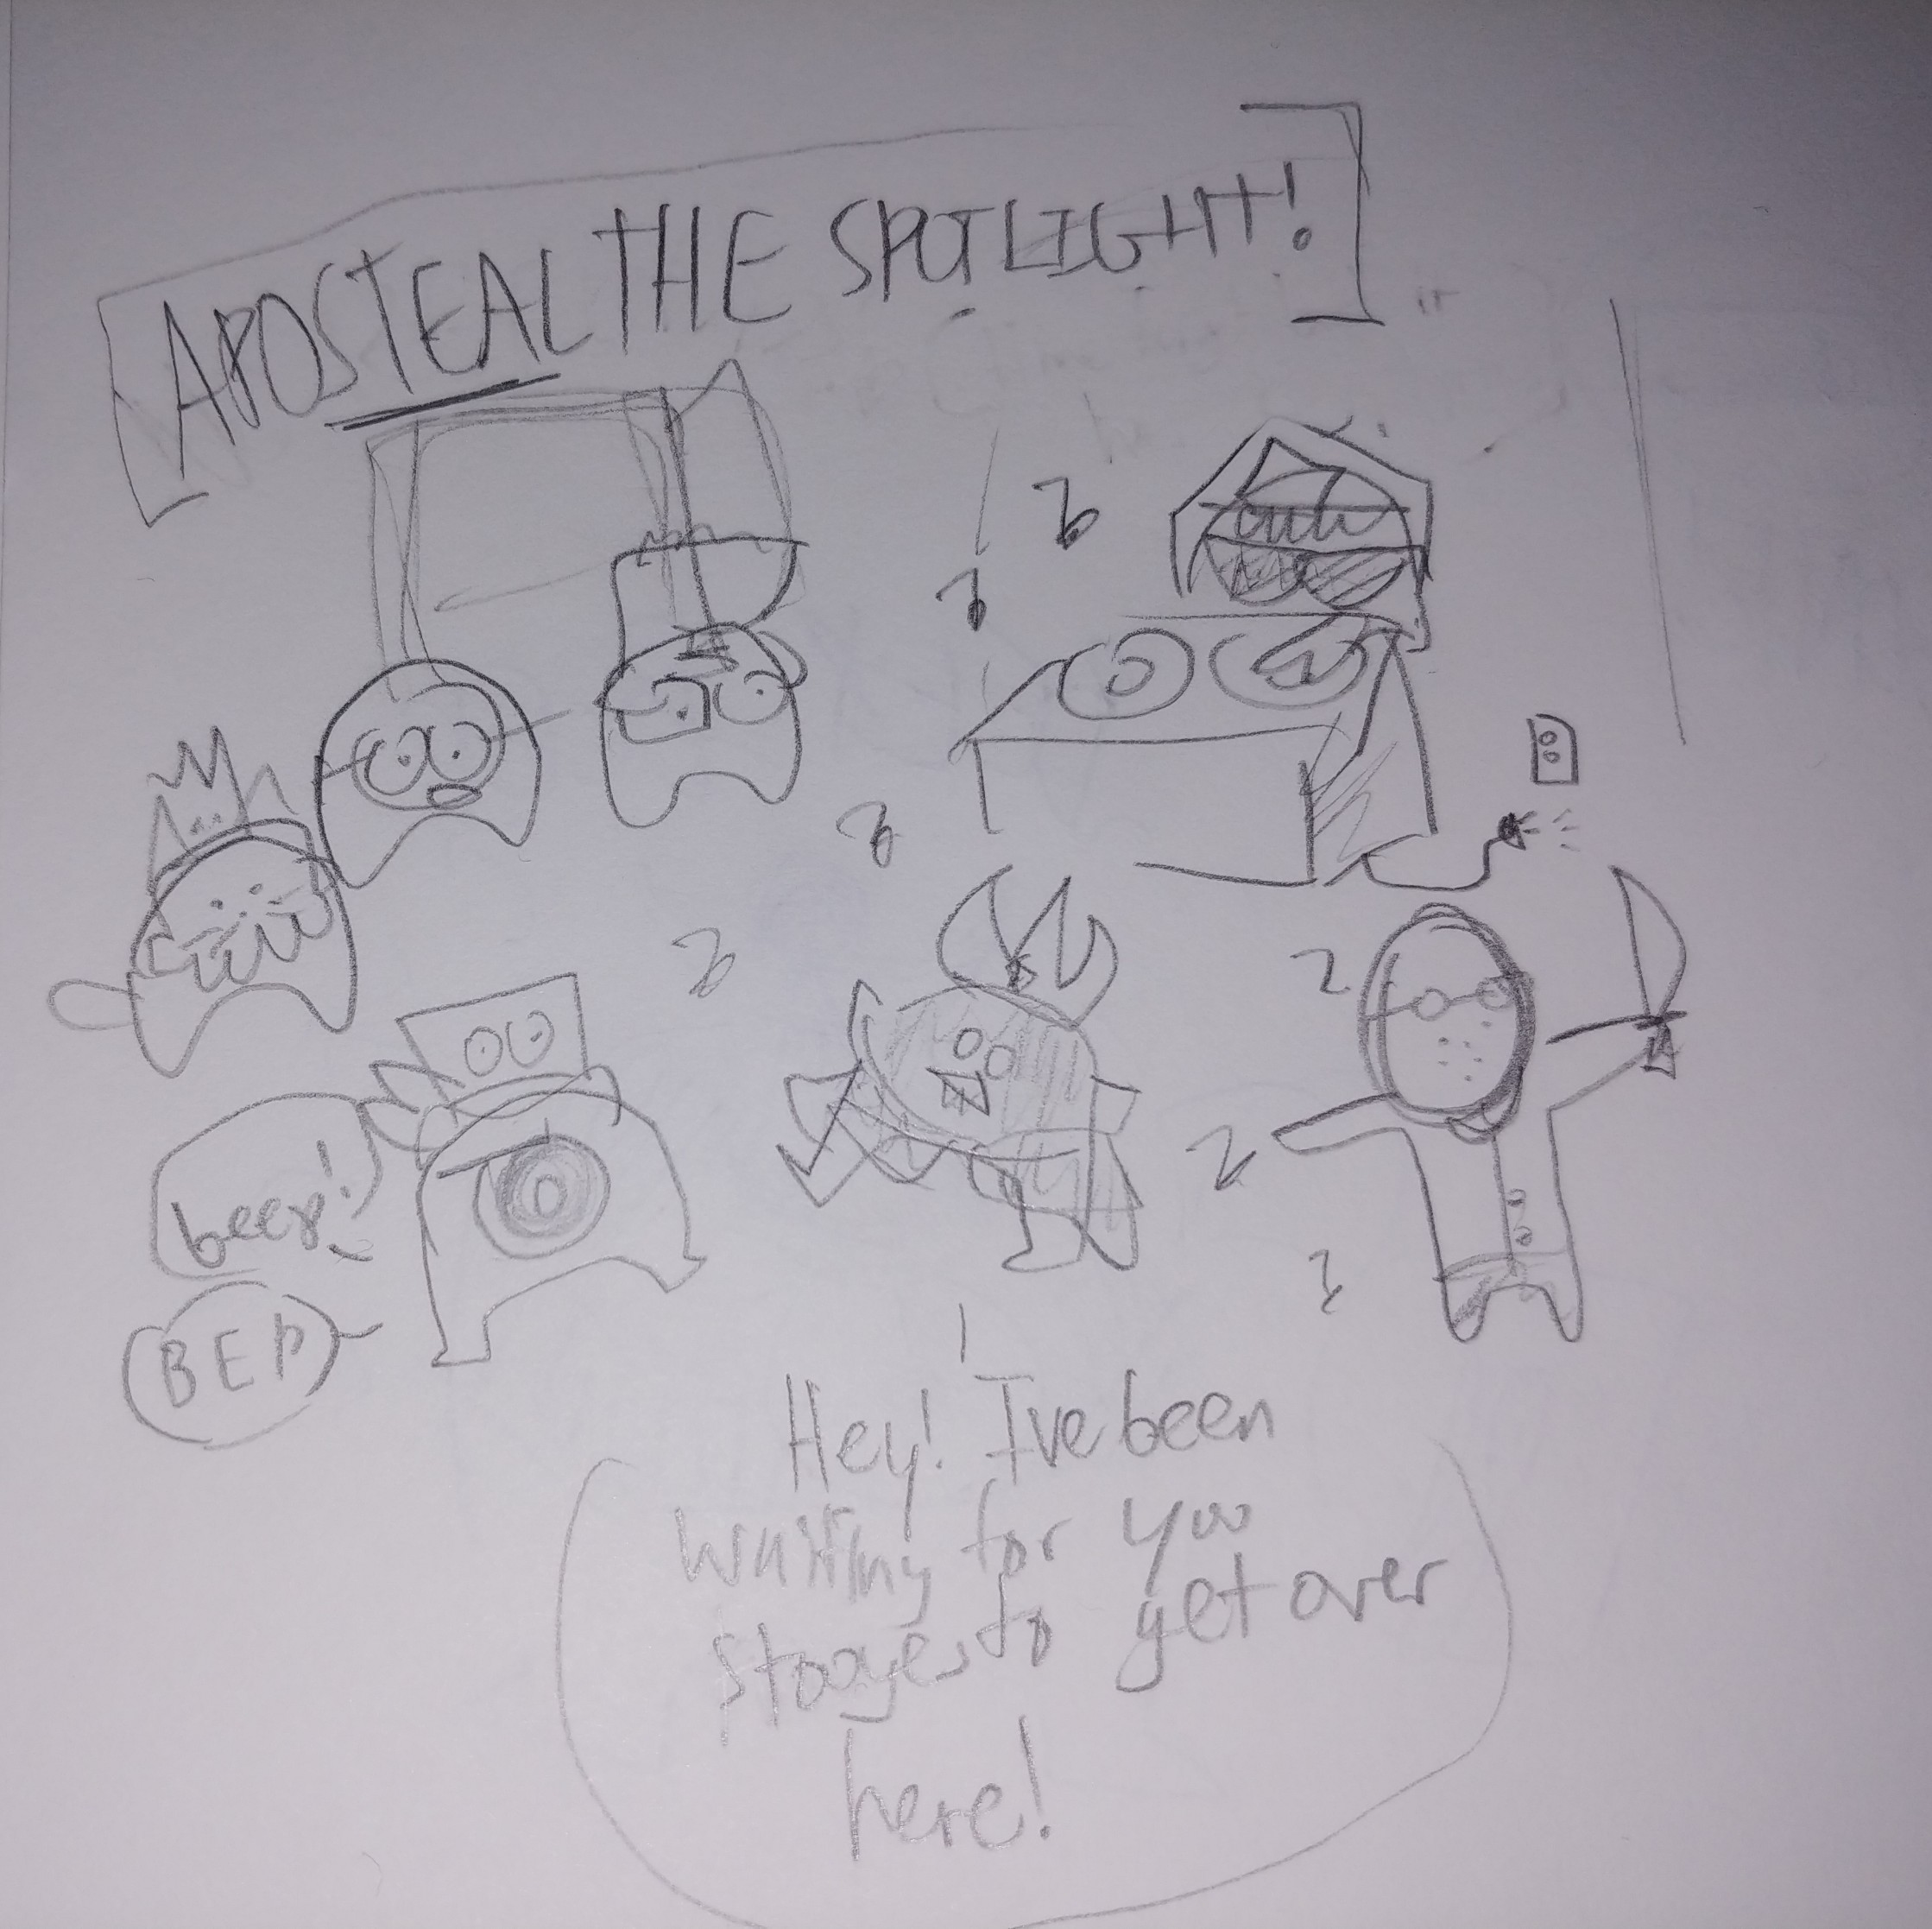 APOSTEAL THE SPOTLIGHT!
beer!
BEP
Hey! I've been
waiting for you
stooges to get over
here!